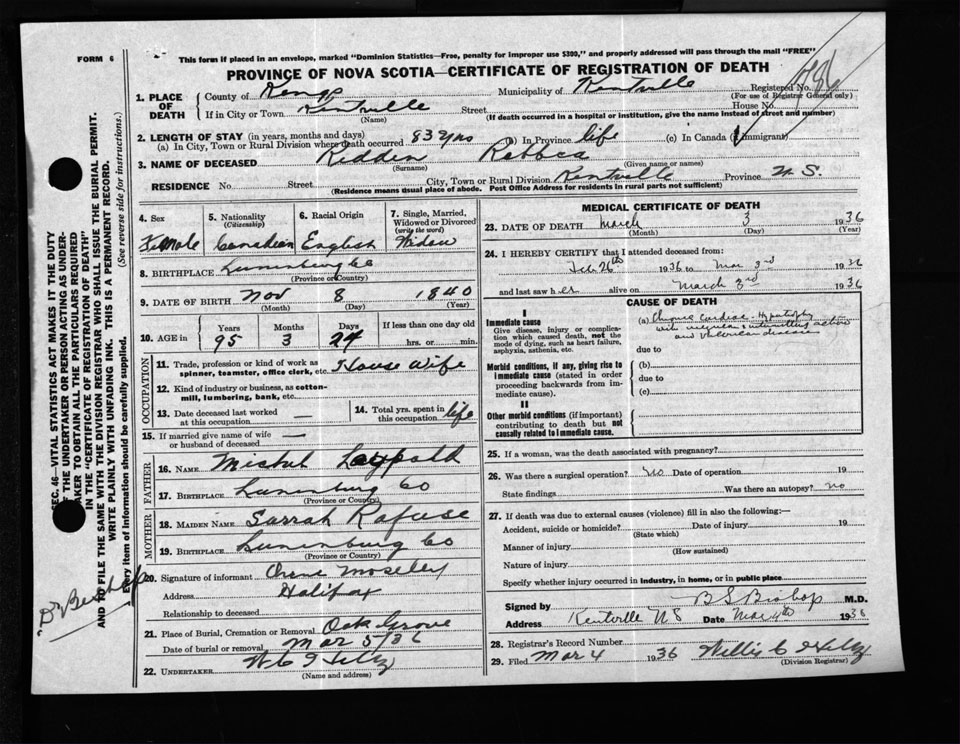 FORM 6
This form if placed in an envelope, marked "Dominion Statistics—Free, penalty for improper use $300," and properly addressed will pass through the mail "FREE"
PROVINCE OF NOVA SCOTIA—CERTIFICATE OF REGISTRATION OF DEATH
1. PLACE OF DEATH
County of Kings Municipality of Kentville Registered No. 786
(For use of Registrar General only)
If in City or Town Kentville Street House No.
(Name) (If death occurred in a hospital or institution, give the name instead of street and number)
2. LENGTH OF STAY (in years, months and days)
(a) In City, Town or Rural Division where death occurred 83 yrs (b) In Province life (c) In Canada (if immigrant)
3. NAME OF DECEASED Redden Rebbca
(Surname) (Given name or names)
RESIDENCE No. Street City, Town or Rural Division Kentville Province N. S.
(Residence means usual place of abode. Post Office Address for residents in rural parts not sufficient)
4. Sex Female
5. Nationality (Citizenship) Canadian
6. Racial Origin English
7. Single, Married, Widowed or Divorced (write the word) Widow
8. BIRTHPLACE Lunenburg Co
(Province or Country)
9. DATE OF BIRTH Nov 8 1840
(Month) (Day) (Year)
10. AGE in Years 95 Months 3 Days 24 If less than one day old hrs. or min.
OCCUPATION
11. Trade, profession or kind of work as spinner, teamster, office clerk, etc. House Wife
12. Kind of industry or business, as cotton-mill, lumbering, bank, etc.
13. Date deceased last worked at this occupation —
14. Total yrs. spent in this occupation life
15. If married give name of wife or husband of deceased —
FATHER
16. NAME Michel
17. BIRTHPLACE Lunenburg Co
(Province or Country)
MOTHER
18. MAIDEN NAME Sarrah Rafuse
19. BIRTHPLACE Lunenburg Co
(Province or Country)
20. Signature of informant Moseley
Address Halifax
Relationship to deceased
21. Place of Burial, Cremation or Removal Oak Grove
Date of burial or removal Mar 5/36
22. UNDERTAKER
(Name and address)
MEDICAL CERTIFICATE OF DEATH
23. DATE OF DEATH March 3 1936
(Month) (Day) (Year)
24. I HEREBY CERTIFY that I attended deceased from:
Feb 26th 1936 to Mar 3rd 1936
and last saw her alive on March 3rd 1936
CAUSE OF DEATH
I
Immediate cause
Give disease, injury or complication which caused death, not the mode of dying, such as heart failure, asphyxia, asthenia, etc.
(a) Chronic Cardiac Hypertrophy
with irregular intermitting action
and Valvular disease
due to
Morbid conditions, if any, giving rise to immediate cause (stated in order proceeding backwards from immediate cause).
(b)
due to
(c)
II
Other morbid conditions (if important) contributing to death but not causally related to immediate cause.
25. If a woman, was the death associated with pregnancy?
26. Was there a surgical operation? No Date of operation 19
State findings Was there an autopsy? no
27. If death was due to external causes (violence) fill in also the following:—
Accident, suicide or homicide? Date of injury 19
(State which)
Manner of injury
(How sustained)
Nature of injury
Specify whether injury occurred in industry, in home, or in public place
Signed by B S Bishop M.D.
Address Kentville N S Date Mar 4th 1936
28. Registrar's Record Number
29. Filed Mar 4 1936 Willis C
(Division Registrar)
SEC. 46—VITAL STATISTICS ACT MAKES IT THE DUTY
OF THE UNDERTAKER OR PERSON ACTING AS UNDER-
TAKER TO OBTAIN ALL THE PARTICULARS REQUIRED
IN THE "CERTIFICATE OF REGISTRATION OF DEATH"
AND TO FILE THE SAME WITH THE DIVISION REGISTRAR WHO SHALL ISSUE THE BURIAL PERMIT.
WRITE PLAINLY WITH UNFADING INK. THIS IS A PERMANENT RECORD.
Every item of information should be carefully supplied. (See reverse side for instructions.)
Dr Bishop